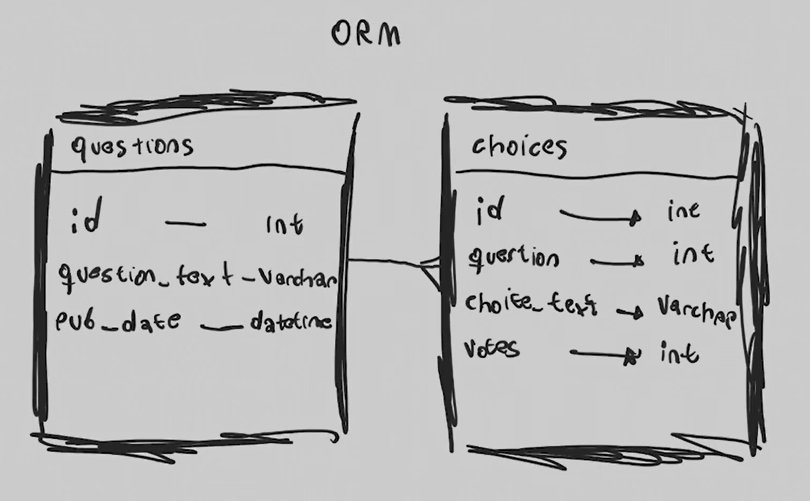 ORM
questions
id — int
question_text - Varchar
pub_date — datetime
choices
id → int
question → int
choice_text → Varchar
votes → int